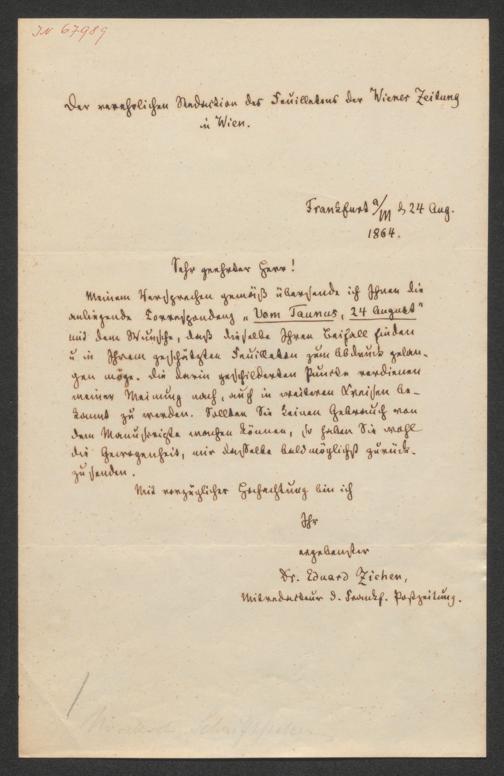 IN 67989
Der verehrlichen Redaction des Feuilletons der Wiener Zeitung
in Wien.
Frankfurt a/M d 24 Aug.
1864.
Sehr geehrter Herr!
Meinem Versprechen gemäß übersende ich Ihnen die
anliegende Correspondenz „Vom Taunus, 24 August"
mit dem Wunsche, daß dieselbe Ihren Beifall finden
u in Ihrem geschätzten Feuilleton zum Abdruck gelan-
gen möge. Die darin geschilderten Punkte verdienen
meiner Meinung nach, auch in weiteren Kreisen be-
kannt zu werden. Sollten Sie keinen Gebrauch von
dem Manuskripte machen können, so haben Sie wohl
die Gewogenheit, mir dasselbe baldmöglichst zurück-
zusenden.
Mit vorzüglicher Hochachtung bin ich
Ihr
ergebenster
Dr. Eduard Ziehen,
Mitredacteur d. Frankf. Postzeitung.